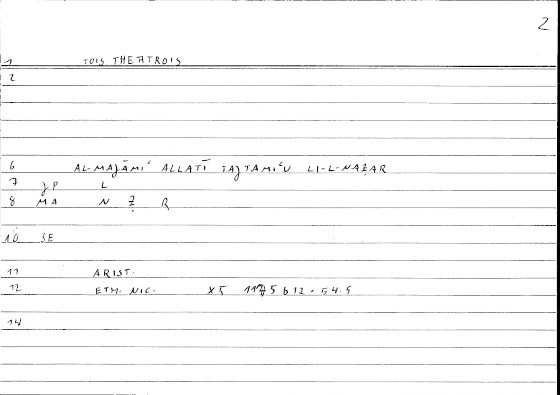 2
1 TOIS THEATROIS
2
6 AL-MAJĀMIʿ ALLATĪ TAJTAMIʿU LI-L-NAẒAR
7 JP L
8 MA N Ẓ R
10 SE
11 ARIST.
12 ETH. NIC. X5 1175 b 12 - 54.5
14